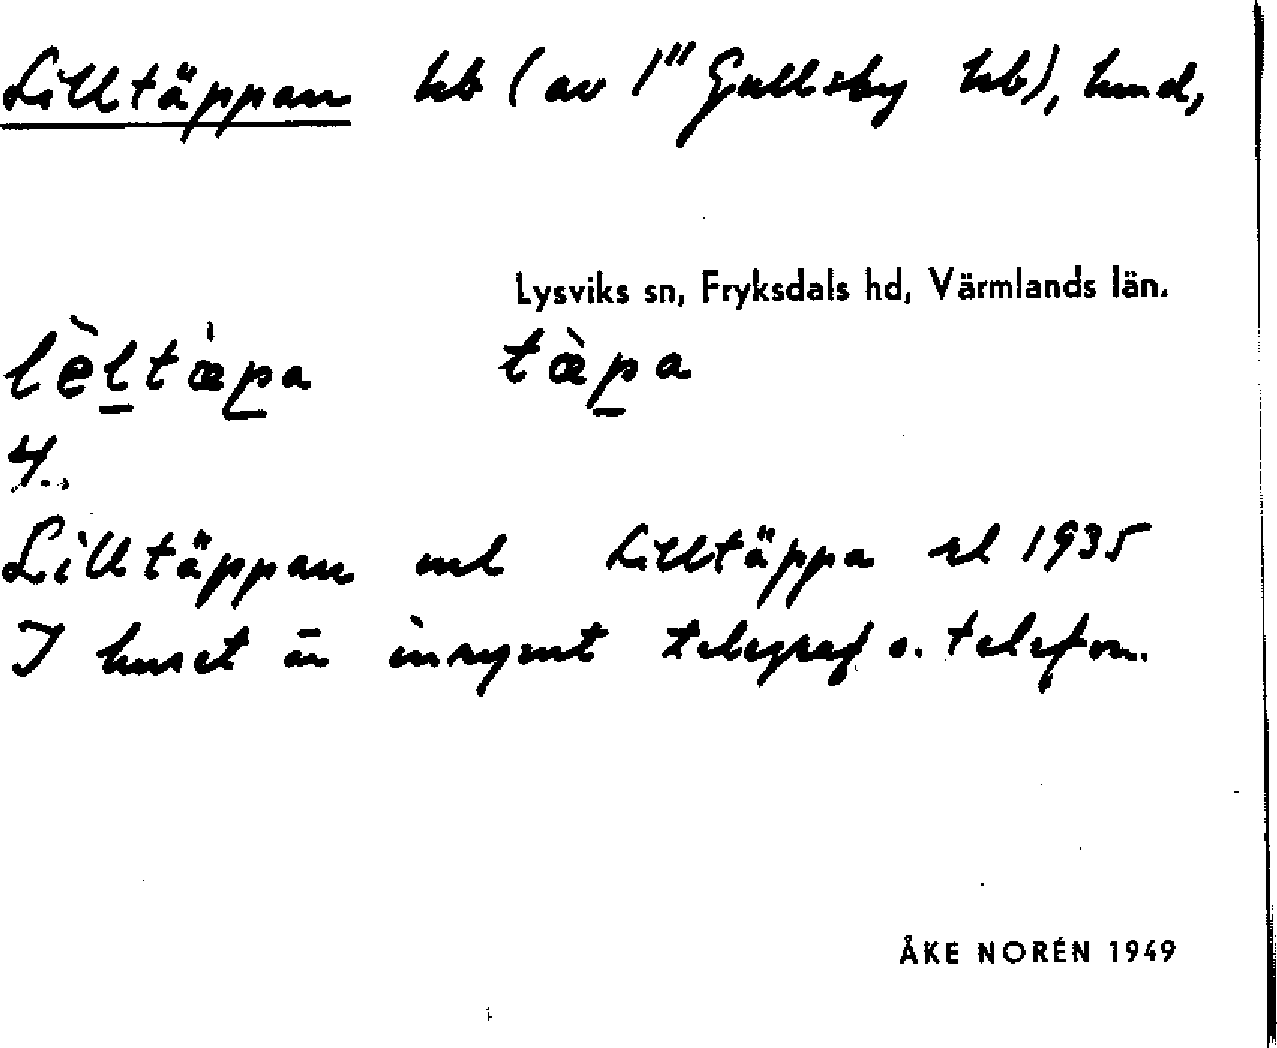 Lilltäppan hb (av 1" Gullsby hb), hmd,
Lysviks sn, Fryksdals hd, Värmlands län.
lèltæ̀pa tæ̀pa
4.,
Lilltäppan ml Lilltäppa rl 1935
I huset är inrymt telegraf o. telefon.
ÅKE NORÉN 1949